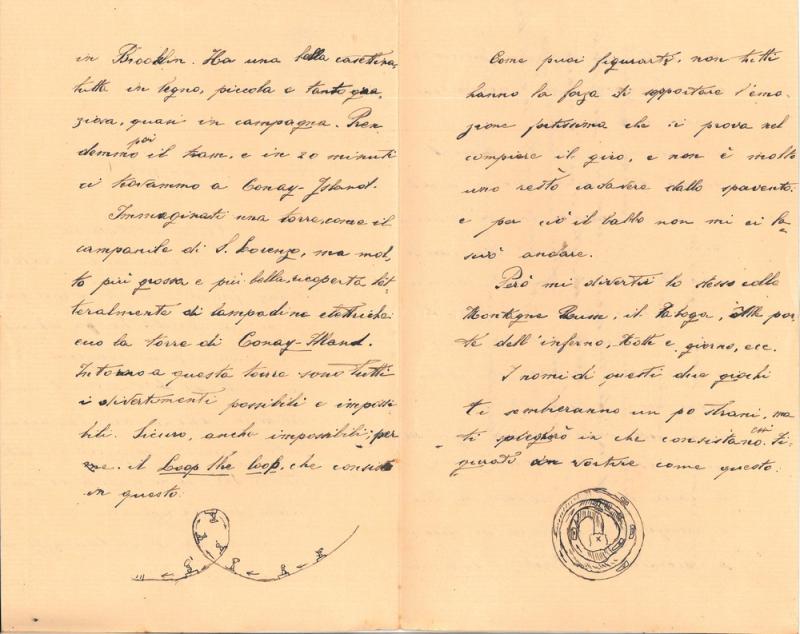 in Brooklin. Ha una bella casettina,
tutta in legno, piccola e tanto gra-
ziosa, quasi in campagna. Pren-
demmo poi il tram, e in 20 minuti
ci trovammo a Conay-Island.
Immaginati una torre, come il
campanile di S. Lorenzo, ma mol-
to più grossa e più bella, ricoperta let-
teralmente di lampadine elettriche:
ecco la torre di Conay-Island.
Intorno a questa torre sono tutti
i divertimenti possibili e impossi
bili. Sicuro, anche impossibili: per
me. il Loop the loop, che consiste
in questo:
Come puoi figurarti, non tutti
hanno la forza di sopportare l'emo-
zione fortissima che si prova nel
compiere il giro, e non è molto
uno restò cadavere dallo spavento:
e per ciò il babbo non mi ci la-
sciò andare.
Però mi divertii lo stesso colle
Montagne Russe, il Taboga, Alle por-
te dell'inferno, Notte e giorno, ecc.
I nomi di questi due giochi
ti sembreranno un po strani, ma
ti spiegherò in che consistano essi. Fi-
gurati un vortice come questo: